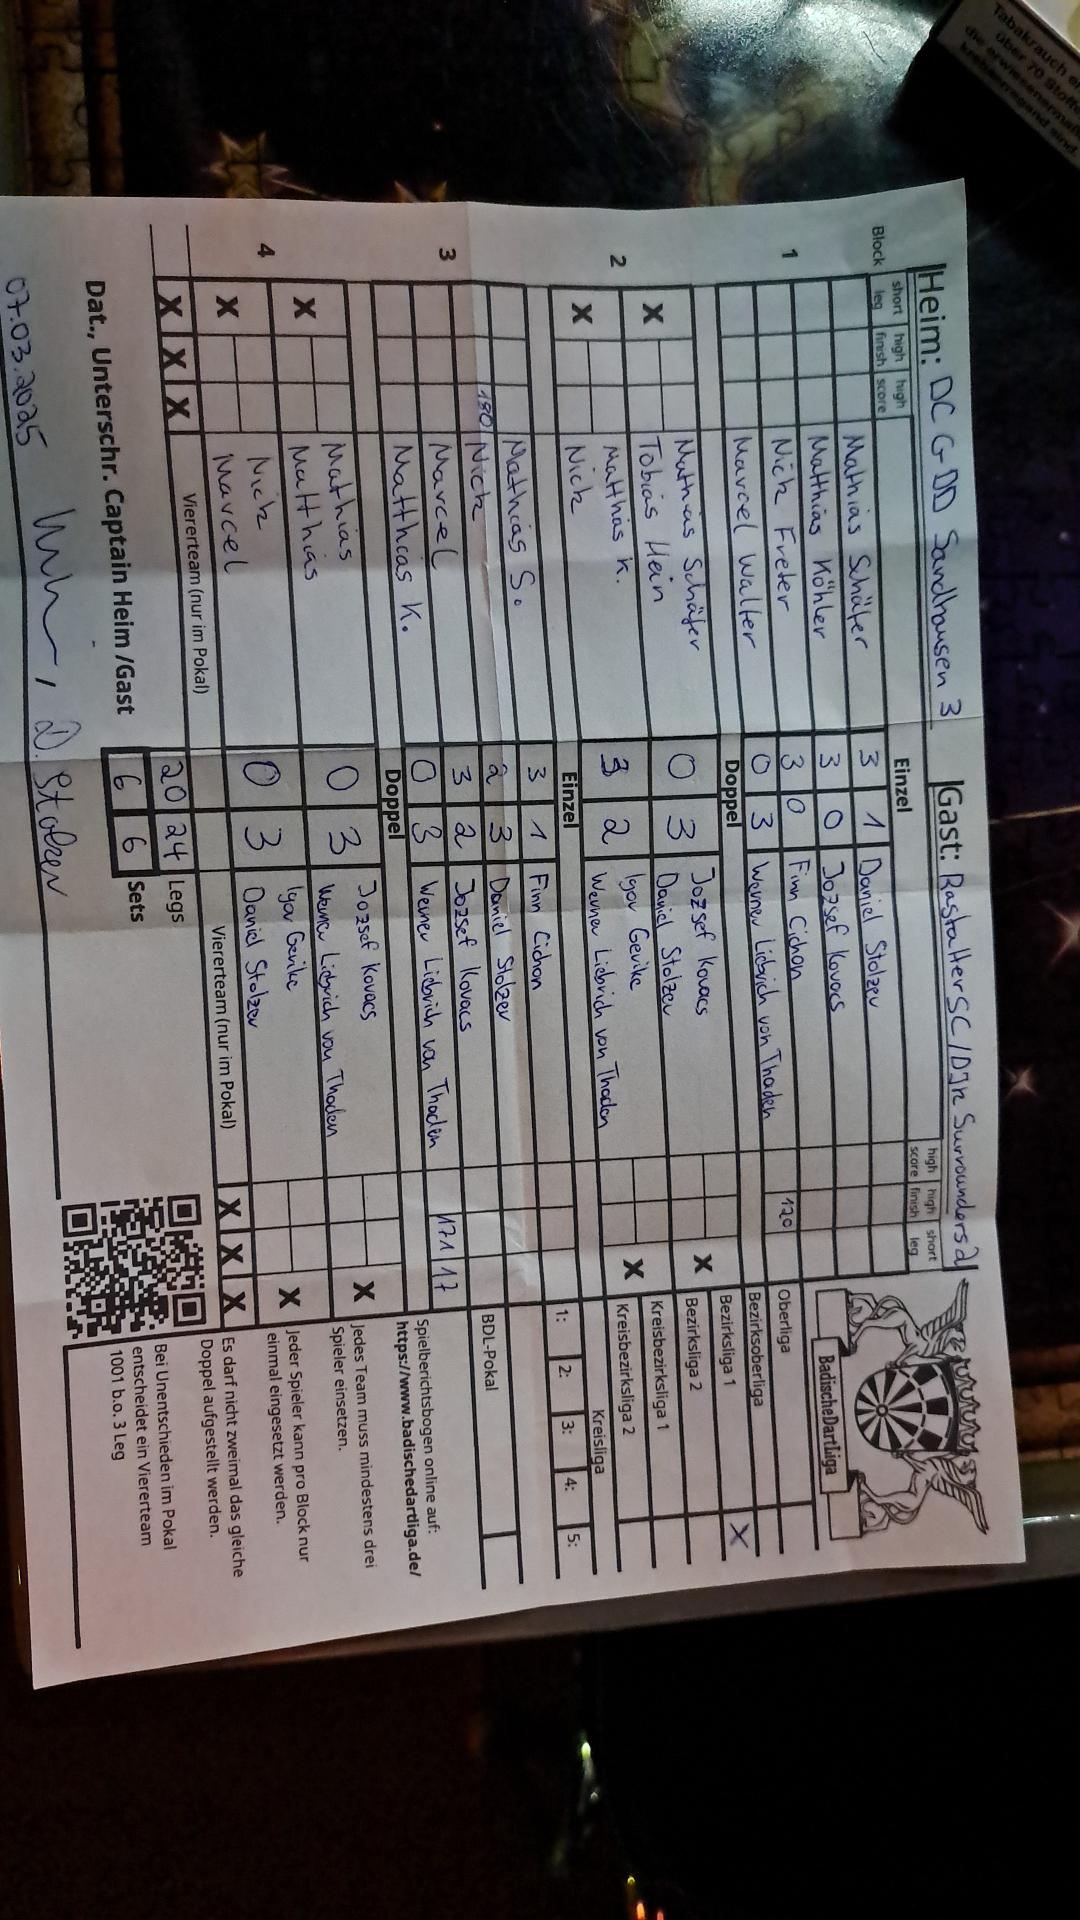 Tabakrauch
über 70 Stoffe
die erwiesenermaßen
krebserregend sind
Heim: DC GDD Sandhausen 3 Gast: Rastatter SC/DJK Surrounders 2
Block short leg high finish high score Einzel high score high finish short leg
1
Mathias Schäfer 3 1 Daniel Stolzer
Matthias Köhler 3 0 Jozsef Kovacs
Nick Freter 3 0 Finn Cichon 120
Marcel Walter 0 3 Werner Liebrich von Thaden
Doppel
2
Mathias Schäfer Jozsef Kovacs
X Tobias Hein 0 3 Daniel Stolzer X
Matthias K. Igor Gerike
X Nick 3 2 Werner Liebrich von Thaden X
Einzel
3
Mathias S. 3 1 Finn Cichon
180 Nick 2 3 Daniel Stolzer
Marcel 3 2 Jozsef Kovacs
Matthias K. 0 3 Werner Liebrich von Thaden 171 17
Doppel
4
Mathias Jozsef Kovacs
X Matthias 0 3 Werner Liebrich von Thaden X
Nick Igor Gerike
X Marcel 0 3 Daniel Stolzer X
X X X Viererteam (nur im Pokal) Viererteam (nur im Pokal) X X X
20 24 Legs
6 6 Sets
Dat., Unterschr. Captain Heim /Gast
07.03.2025 D. Stolzer
BadischeDartLiga
Oberliga
Bezirksoberliga
Bezirksliga 1 X
Bezirksliga 2
Kreisbezirksliga 1
Kreisbezirksliga 2
Kreisliga
1: 2: 3: 4: 5:
BDL-Pokal
Spielberichtsbogen online auf:
https://www.badischedartliga.de/
Jedes Team muss mindestens drei
Spieler einsetzen.
Jeder Spieler kann pro Block nur
einmal eingesetzt werden.
Es darf nicht zweimal das gleiche
Doppel aufgestellt werden.
Bei Unentschieden im Pokal
entscheidet ein Viererteam
1001 b.o. 3 Leg